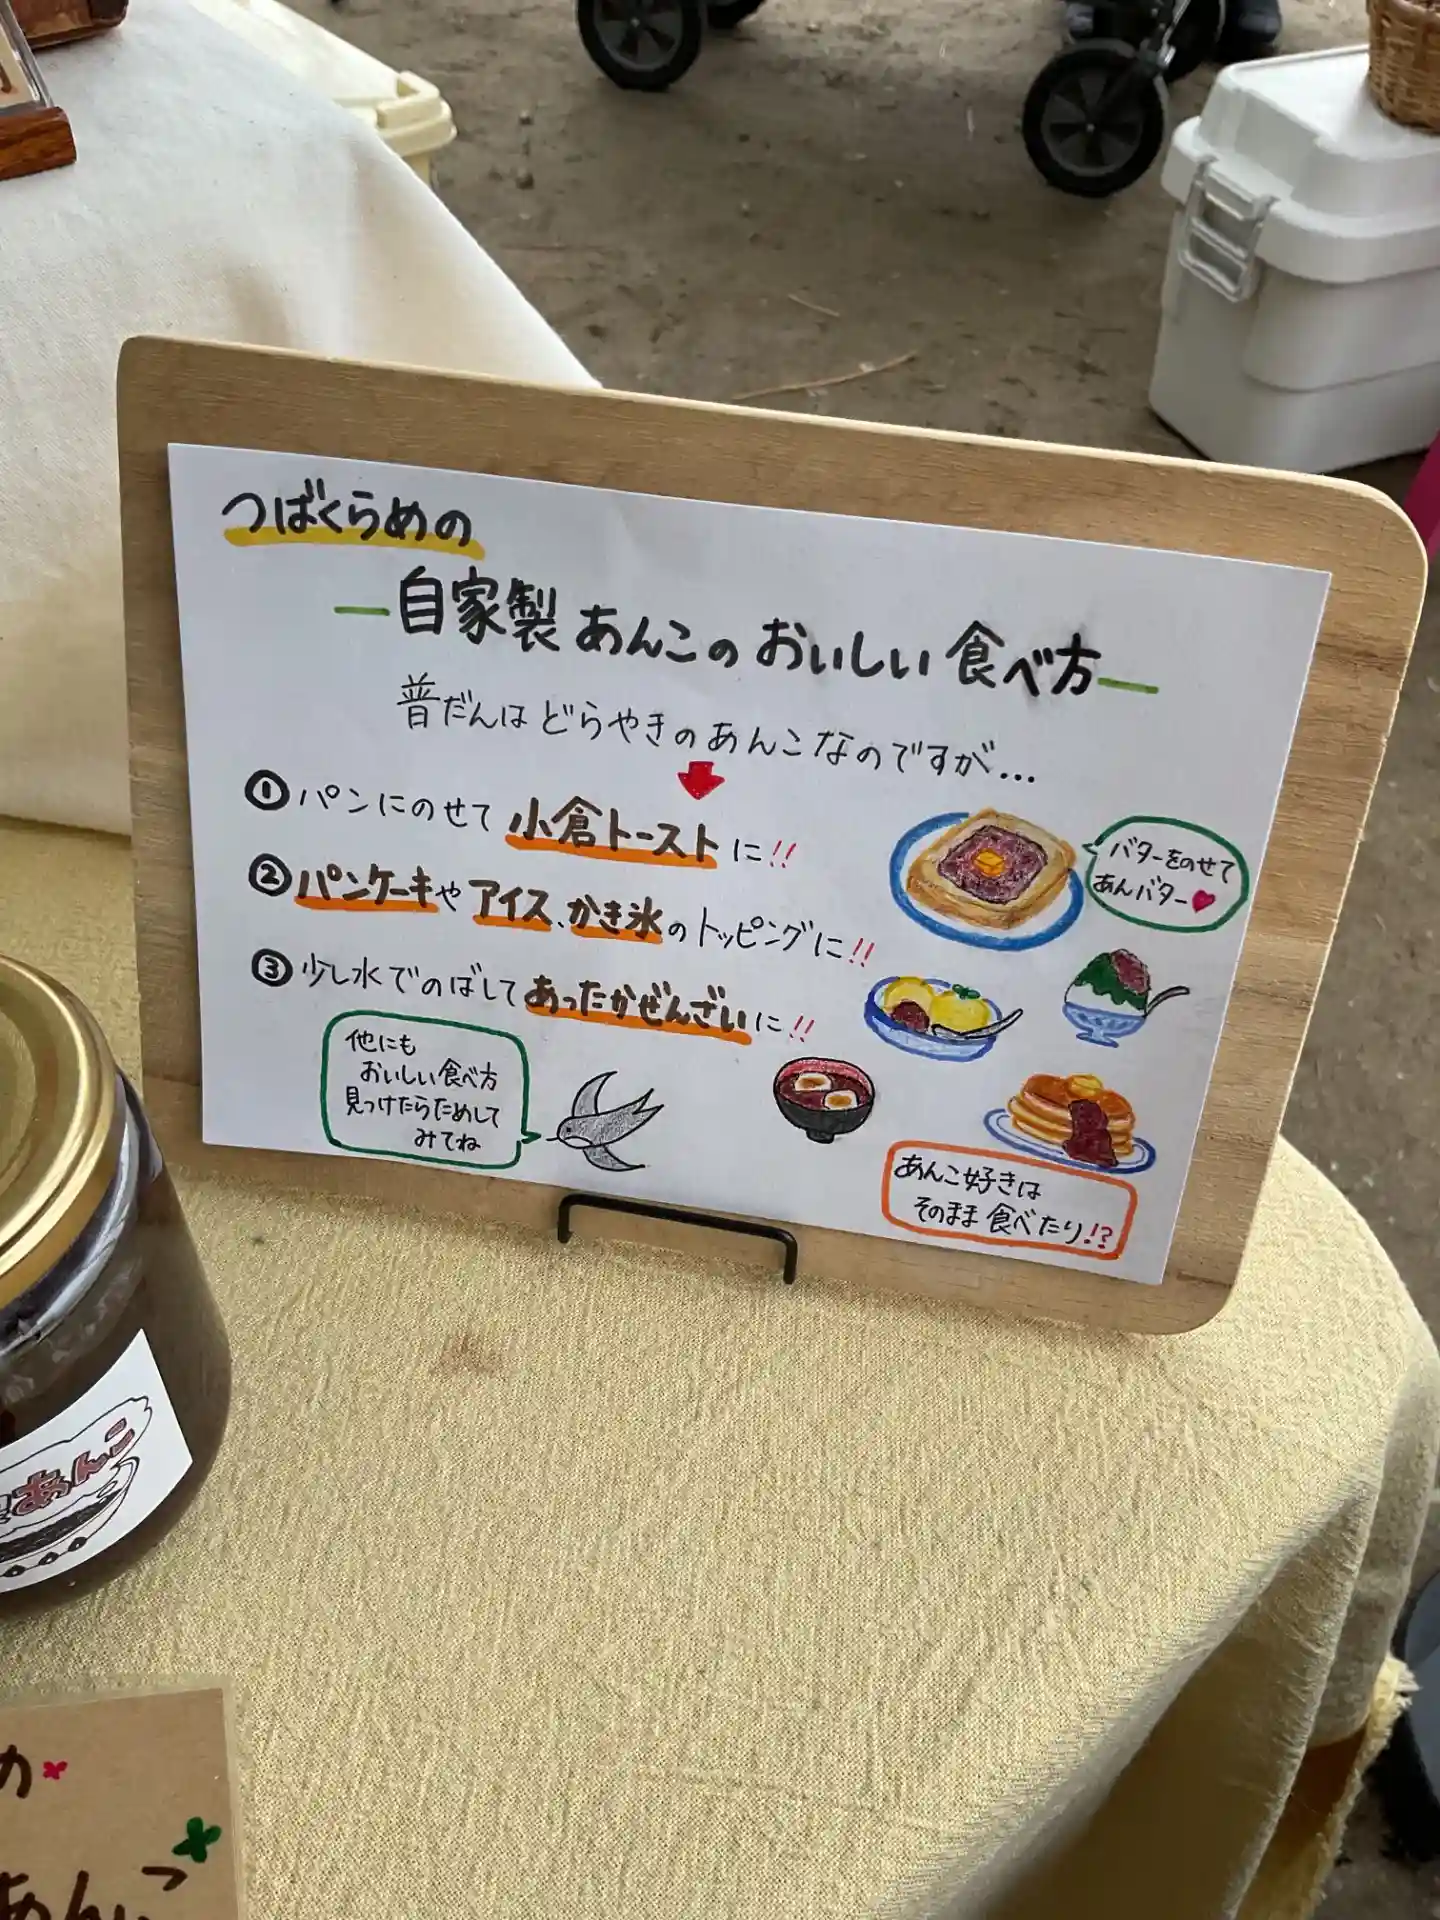 つばくらめの
自家製 あんこの おいしい 食べ方
普だんは どらやきの あんこ なのですが...
① パンにのせて 小倉トースト に!!
② パンケーキや アイス、かき氷の トッピングに!!
③ 少し水でのばして あったかぜんざい に!!
バターをのせて
あんバター
他にも
おいしい食べ方
見つけたらためして
みてね
あんこ好きは
そのまま 食べたり!?
あんこ